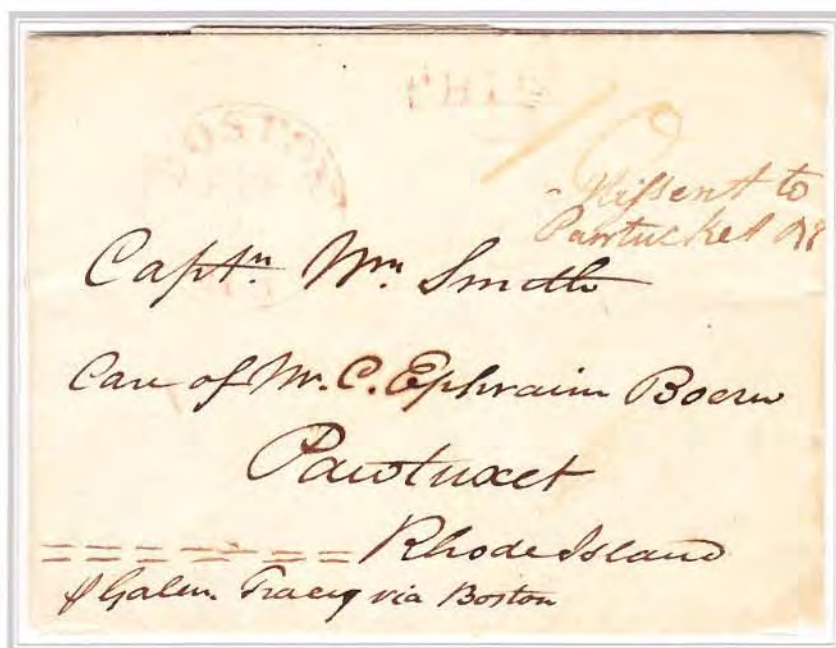 SHIP
BOSTON
Missent to
Pawtucket RI
Captn. Wm. Smith
Care of Mr. C. Ephraim
Pawtuxet
Rhode Island
Galen Tracy via Boston